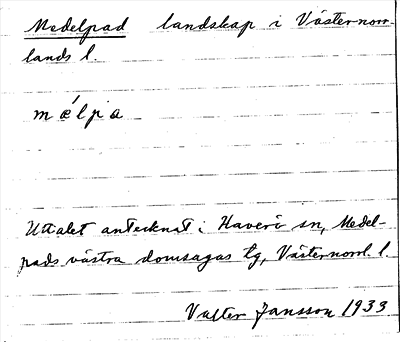 Medelpad landskap i Västernorr-
lands l.
mǽlpa
Uttalet antecknat i Haverö sn, Medel-
pads västra domsagas tg, Västernorrl. l.
Valter Jansson 1933